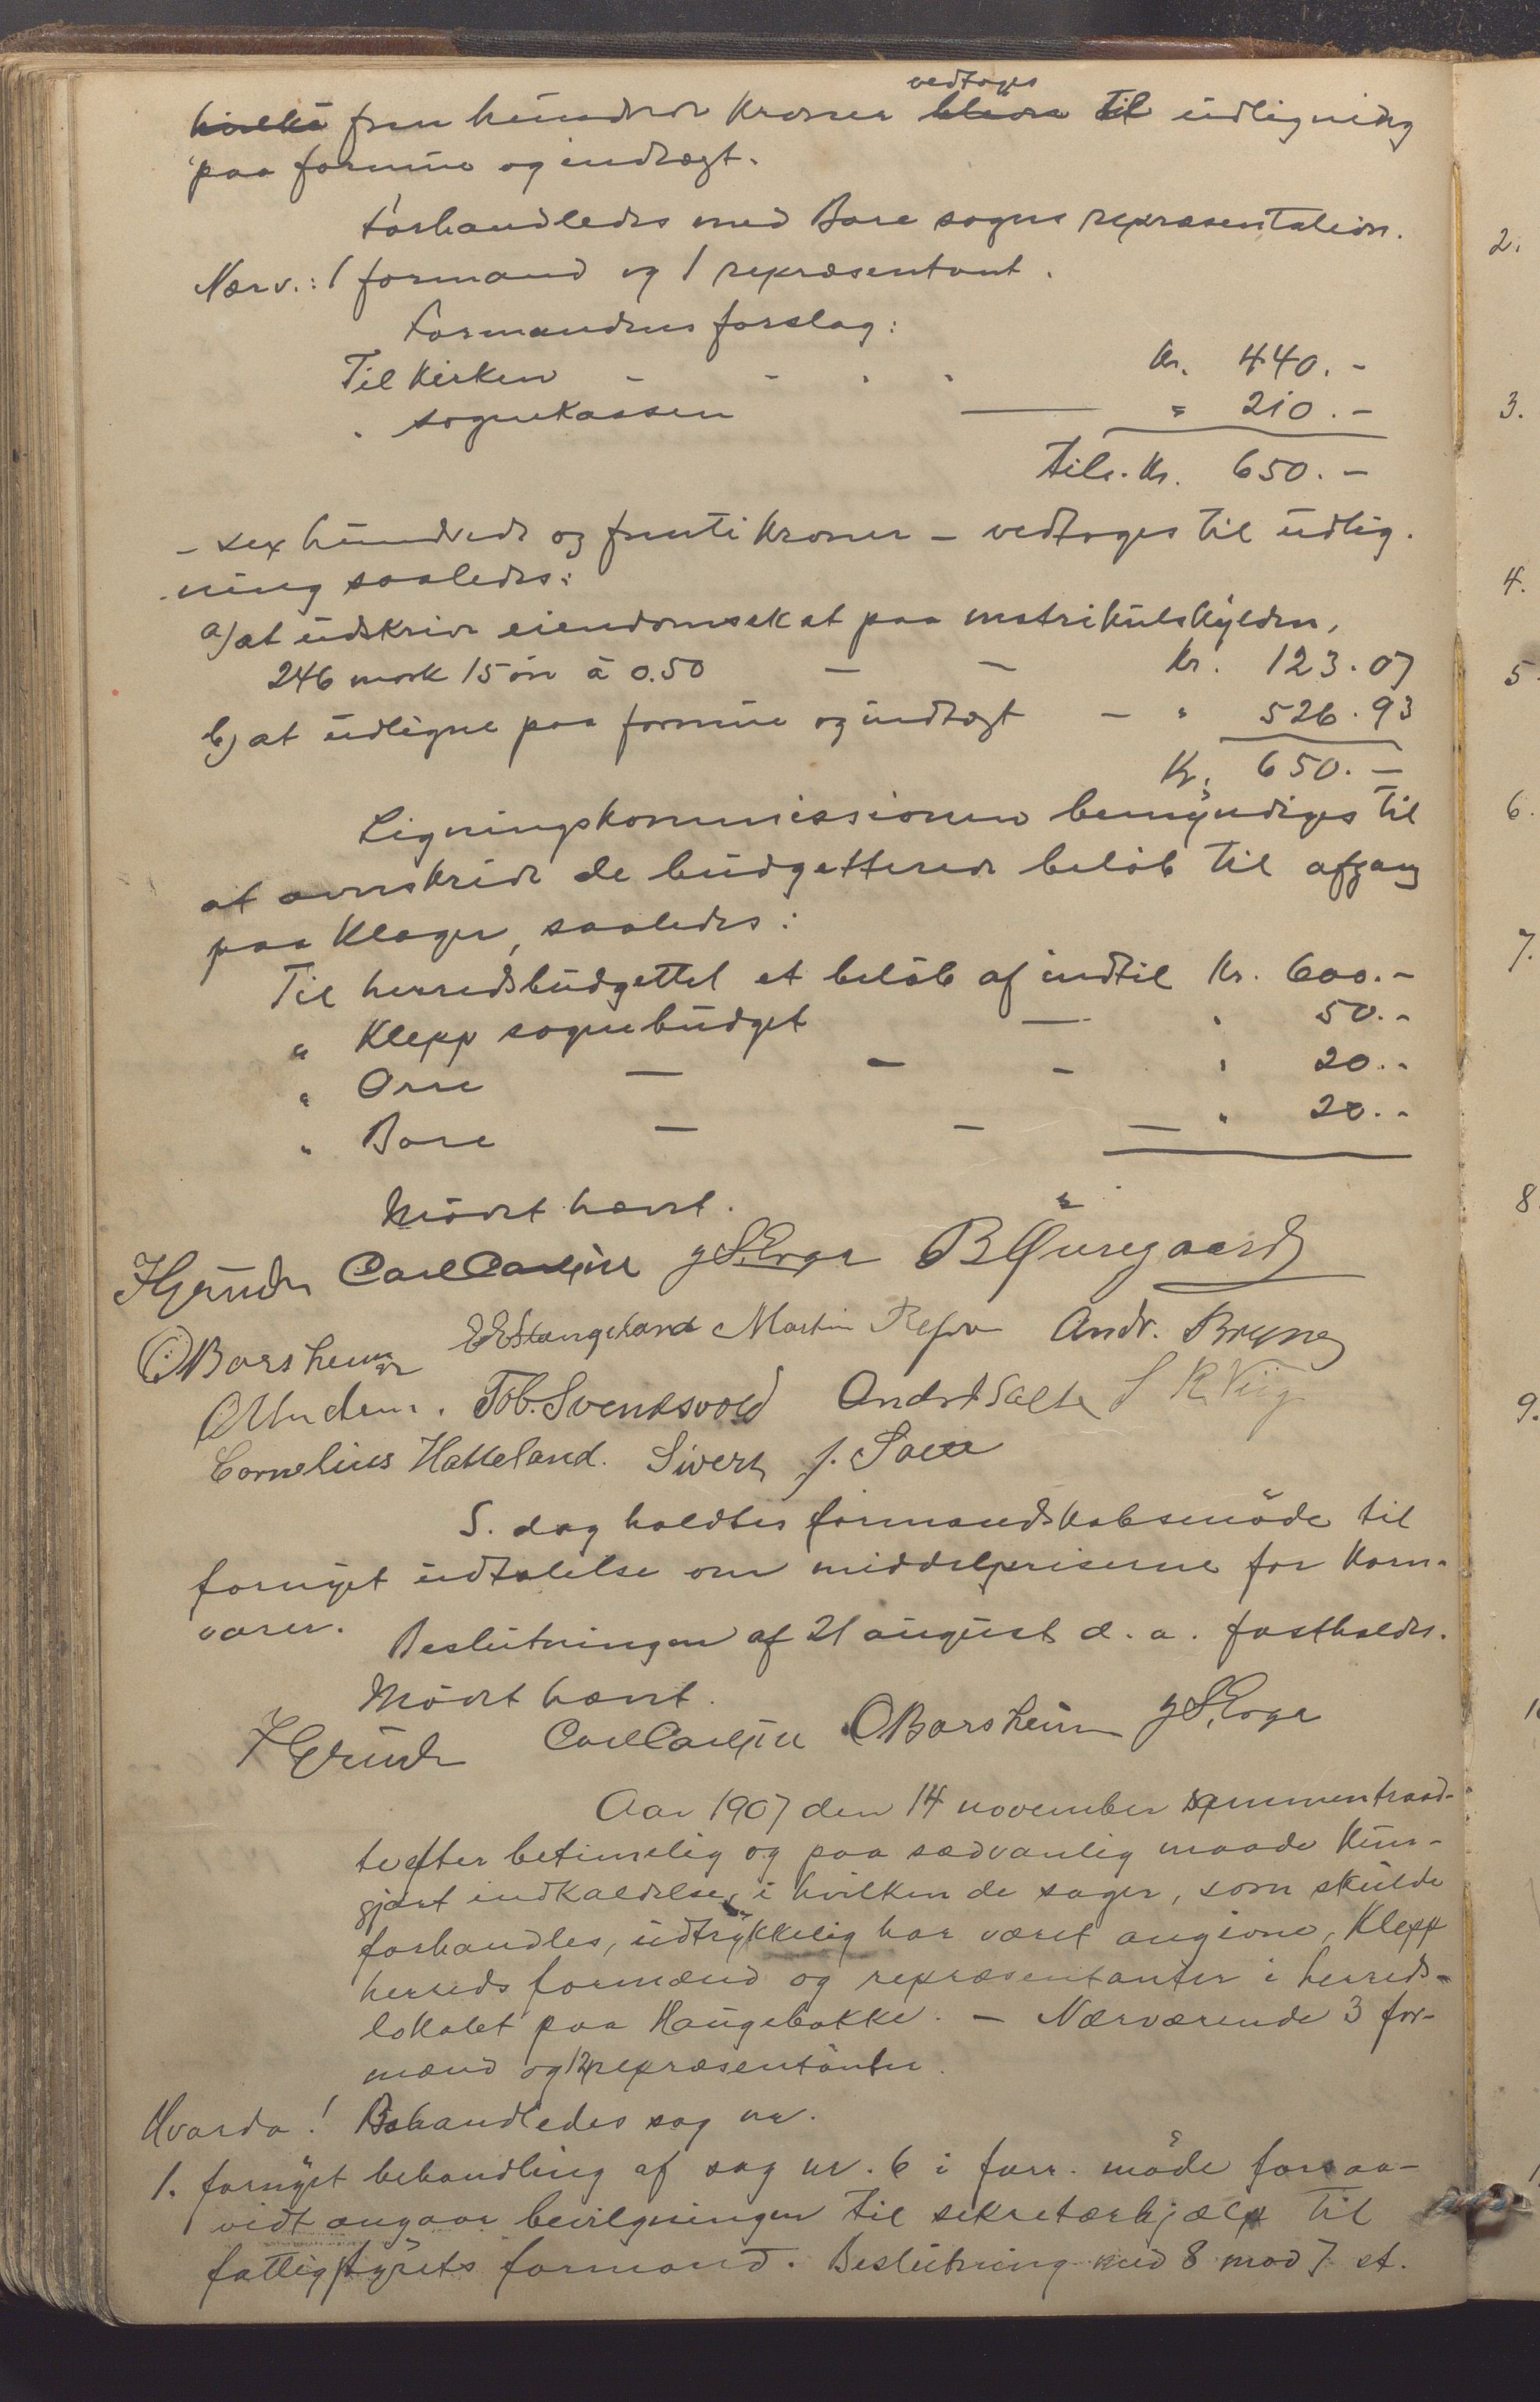 fem hundrede kroner vedtoges til udligning
paa formue og indtægt.
Forhandledes med Bore sogns repræsentation.
Nærv.: 1 formand og 1 repræsentant.
Formandens forslag:
Til kirken - - - - Kr. 440.-
" sognekassen — " 210.-
Tils. Kr. 650.-
- sex hundrede og femti kroner - vedtoges til udlig-
ning saaledes:
a) at udskrive eiendomsskat paa matrikulskylden,
246 mark 15 øre à 0.50 — — Kr. 123.07
b) at udligne paa formue og indtægt — " 526.93
Kr. 650.—
Ligningskommissionen bemyndiges til
at overskride de budgetterede beløb til afgang
paa klager, saaledes:
Til herredsbudgettet et beløb af indtil Kr. 600.-
" Klepp sognebudget — " 50.-
" Orre — — - " 20.-
" Bore — — — " 20.-
Mødet hævet.
Carl Carlsen B Øuregaard
O Borsheim E E Stangeland Martin Andr. Bryne
Tob. Svendsvold Andr. Salte S R Viig
Cornelius Hatteland. Sivert J.
S. dag holdtes formandskabsmøde til
fornyet udtalelse om middelpriserne for korn-
varer.
Beslutningen af 21 august d. a. fastholdes.
Mødet hævet.
Carl Carlsen O Borsheim
Aar 1907 den 14 november sammentraad-
te efter betimelig og paa sædvanlig maade kun-
gjort indkaldelse, i hvilken de sager, som skulde
forhandles, udtrykkelig har været angivne, Klepp
herreds formænd og repræsentanter i herreds-
lokalet paa Haugebakke. — Nærværende 3 for-
mænd og 12 repræsentanter.
Hvorda! Behandledes sag nr.
1. fornyet behandling af sag nr. 6 i forr. møde forsaa-
vidt angaar bevilgningen til sekretærhjælp til
fattigstyrets formand. Beslutning med 8 mod 7 st.
2.
3.
4.
5.
6.
7.
8.
9.